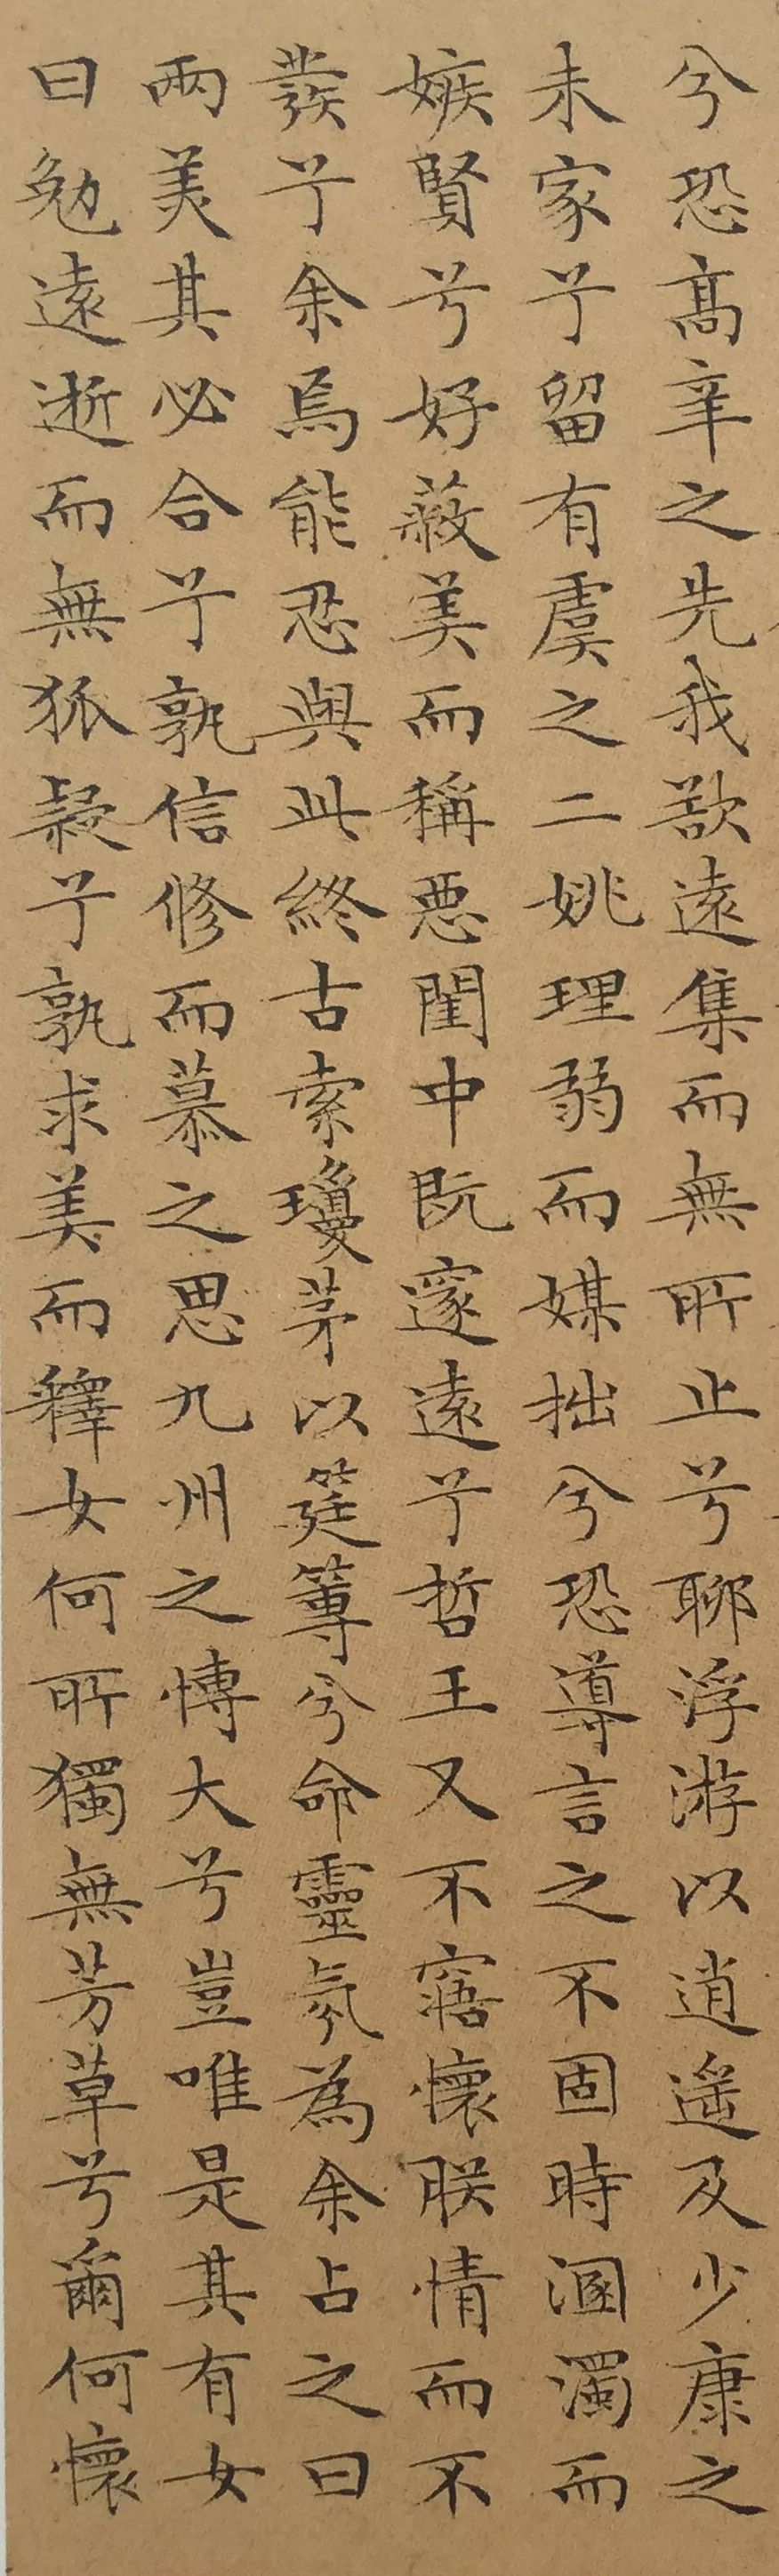 兮恐高辛之先我欲遠集而無所止兮聊浮游以逍遥及少康之
未家兮留有虞之二姚理弱而媒拙兮恐導言之不固時溷濁而
嫉賢兮好蔽美而稱惡閨中既邃遠兮哲王又不寤懷朕情而不
發兮余焉能忍與此終古索瓊茅以筳篿兮命靈氛為余占之曰
兩美其必合兮孰信修而慕之思九州之博大兮豈唯是其有女
曰勉遠逝而無狐疑兮孰求美而釋女何所獨無芳草兮爾何懷